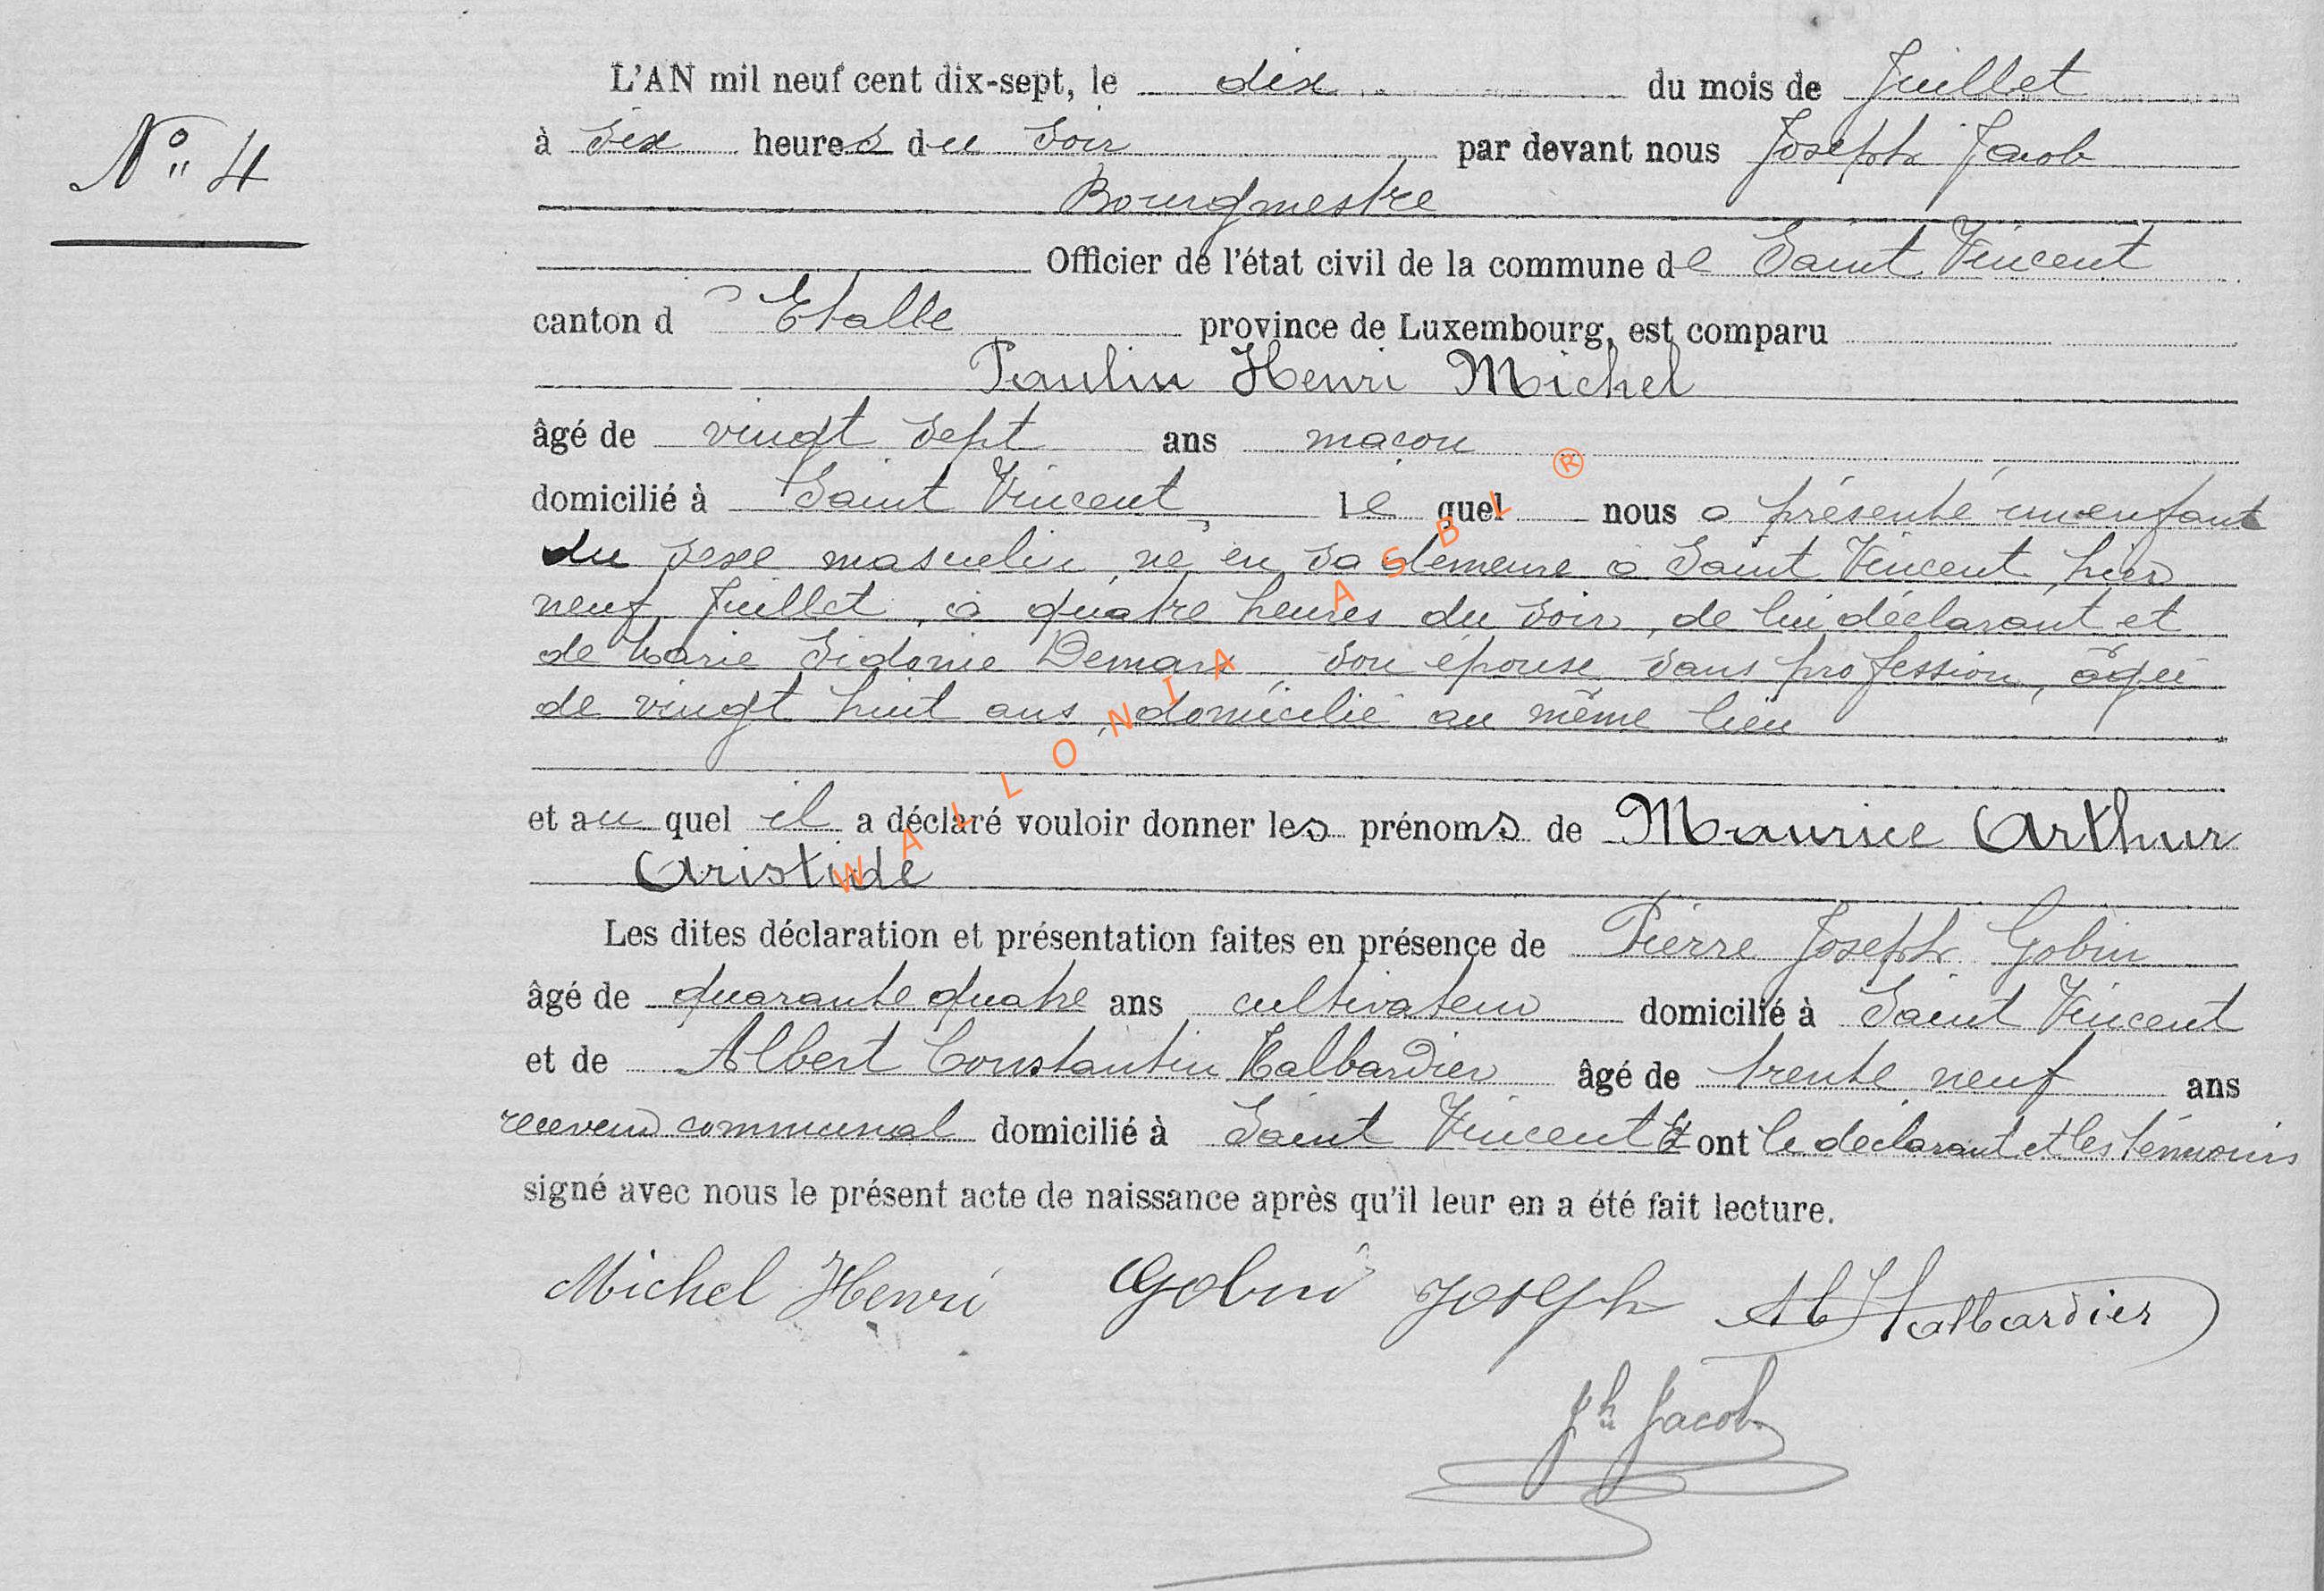 N° 4
L'AN mil neuf cent dix-sept, le dix du mois de Juillet
à six heures du soir par devant nous Joseph Jacob
Bourgmestre
Officier de l'état civil de la commune de Saint Vincent
canton d'Etalle province de Luxembourg, est comparu
Paulin Henri Michel
âgé de vingt sept ans maçon
domicilié à Saint Vincent, lequel nous a présenté un enfant
du sexe masculin, né en sa demeure à Saint Vincent, hier
neuf Juillet, à quatre heures du soir, de lui déclarant et
de Marie Sidonie Demarx, son épouse, sans profession, âgée
de vingt huit ans, domicilié au même lieu
et auquel il a déclaré vouloir donner les prénoms de Maurice Arthur
Aristide
Les dites déclaration et présentation faites en présence de Pierre Joseph Gobin
âgé de quarante quatre ans cultivateur domicilié à Saint Vincent
et de Albert Constantin Halbardier âgé de trente neuf ans
receveur communal domicilié à Saint Vincent Et ont le déclarant et les témoins
signé avec nous le présent acte de naissance après qu'il leur en a été fait lecture.
Michel Henri Gobin Joseph Alb Halbardier
Jh Jacob
WALLONIA ASBL ®